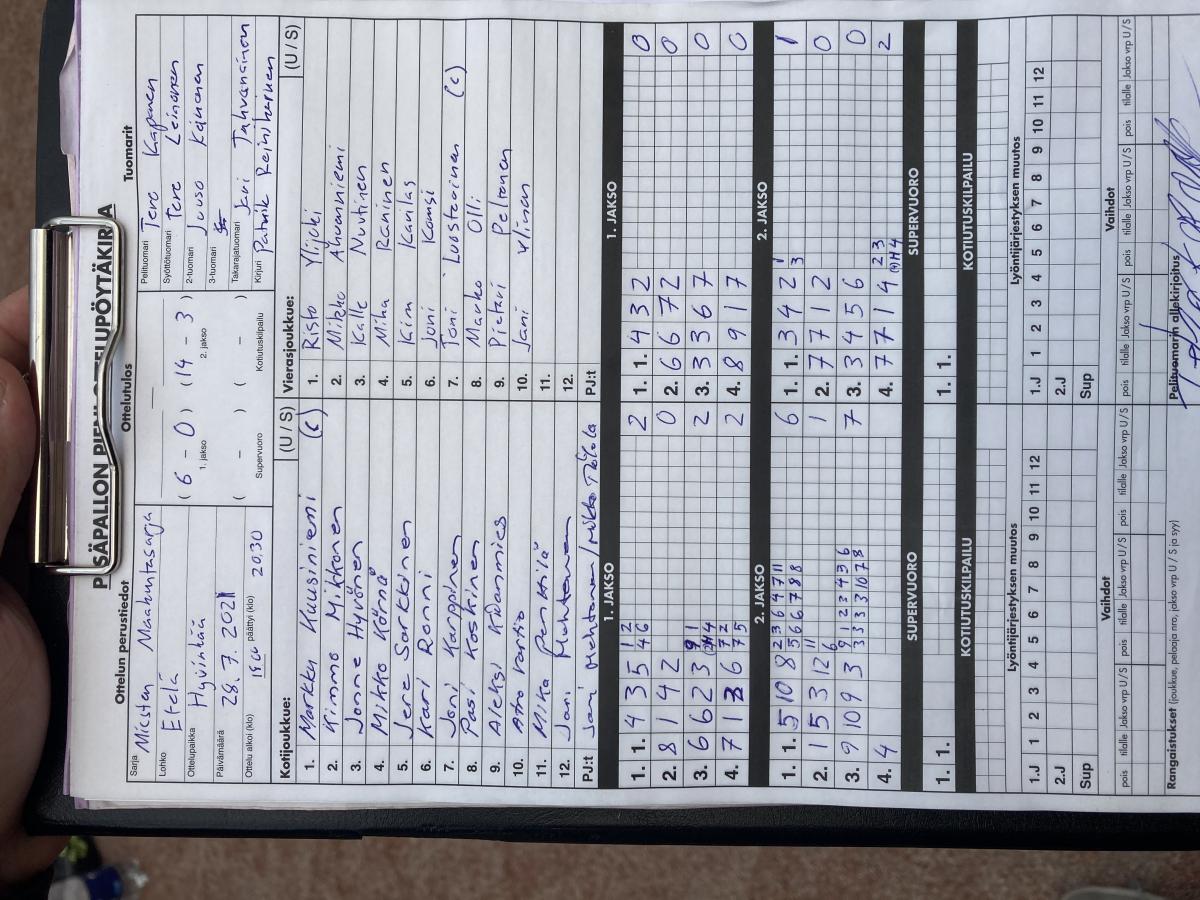 PESÄPALLON PIENI OTTELUPÖYTÄKIRJA
Ottelun perustiedot
Sarja Miesten Maakuntasarja
Lohko Etelä
Ottelupaikka Hyvinkää
Päivämäärä 28.7.2021
Ottelu alkoi (klo) päättyi (klo) 20.30
Ottelutulos
( 6 - 0 ) ( 14 - 3 )
1. jakso 2. jakso
( - ) ( - )
Supervuoro Kotiutuskilpailu
Tuomarit
Pelituomari Tero Kapanen
Syöttötuomari Tero Leinonen
2-tuomari Juuso Keinonen
3-tuomari
Takarajatuomari Jari Tahvanainen
Kirjuri Patrik
Kotijoukkue: (U / S)
1. Markku Kuusiniemi (c)
2. Kimmo Mikkonen
3. Janne Hyvönen
4. Mikko Körnä
5. Jere Sarkkinen
6. Kari Ronni
7. Joni Karppinen
8. Pasi Koskinen
9. Aleksi
10. Atro Vartio
11. Mika Penttilä
12. Jani Mahtanen
PJ:t Jani Mahtanen / Mikko Tölöla
Vierasjoukkue: (U / S)
1. Risto Ylijoki
2. Mikko Ahvenniemi
3. Kalle Nuutinen
4. Miha Raninen
5. Kim Kailas
6. Joni Komsi
7. Toni Luostarinen (c)
8. Marko Olli
9. Pietari Peltonen
10. Jani Ylinen
11.
12.
PJ:t
1. JAKSO 1. JAKSO
1. 1. 4 3 5 1 2 2
4 6
2. 8 1 4 2 0
3. 6 6 2 3 2
4. 7 1 3 6 7 2 2
7 5
1. 1. 4 3 2 0
2. 6 6 7 2 0
3. 3 3 6 7 0
4. 8 9 1 7 0
2. JAKSO 2. JAKSO
1. 1. 5 10 8 2 3 6 4 7 11 6
5 6 6 7 8 8
2. 1 5 3 12 11 1
6
3. 9 10 9 3 9 1 2 3 4 3 6 7
3 3 3 3 10 7 8
4. 4
1. 1. 3 4 2 1 1
3
2. 7 7 1 2 0
3. 3 4 5 6 0
4. 7 7 1 4 2 3 2
H4
SUPERVUORO SUPERVUORO
1. 1.
1. 1.
KOTIUTUSKILPAILU KOTIUTUSKILPAILU
Lyöntijärjestyksen muutos Lyöntijärjestyksen muutos
1.J 1 2 3 4 5 6 7 8 9 10 11 12
2.J
Sup
1.J 1 2 3 4 5 6 7 8 9 10 11 12
2.J
Sup
Vaihdot Vaihdot
pois tilalle Jakso vrp U / S pois tilalle Jakso vrp U / S pois tilalle Jakso vrp U / S
pois tilalle Jakso vrp U / S pois tilalle Jakso vrp U / S pois tilalle Jakso vrp U / S
Rangaistukset (joukkue, pelaaja nro, jakso vrp U / S ja syy)
Pelituomarin allekirjoitus